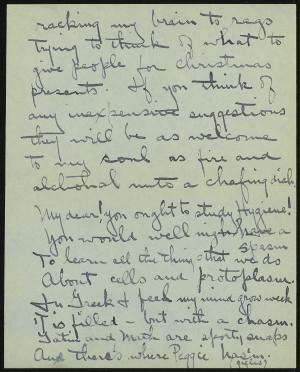 racking my brain to rags
trying to think of what to
give people for Christmas
presents. If you think of
any inexpensive suggestions
they will be as welcome
to my soul as fire and
alchohol unto a chafing dish.
My dear! you ought to study Hygiene!
You would well nigh have a
spasm
To learn all the things that we do
About cells and protoplasm.
In Greek I feel my mind grow week
'Tis filled - but with a chasm.
Latin and Math are sporty snaps
And there's where Peggie hasm.